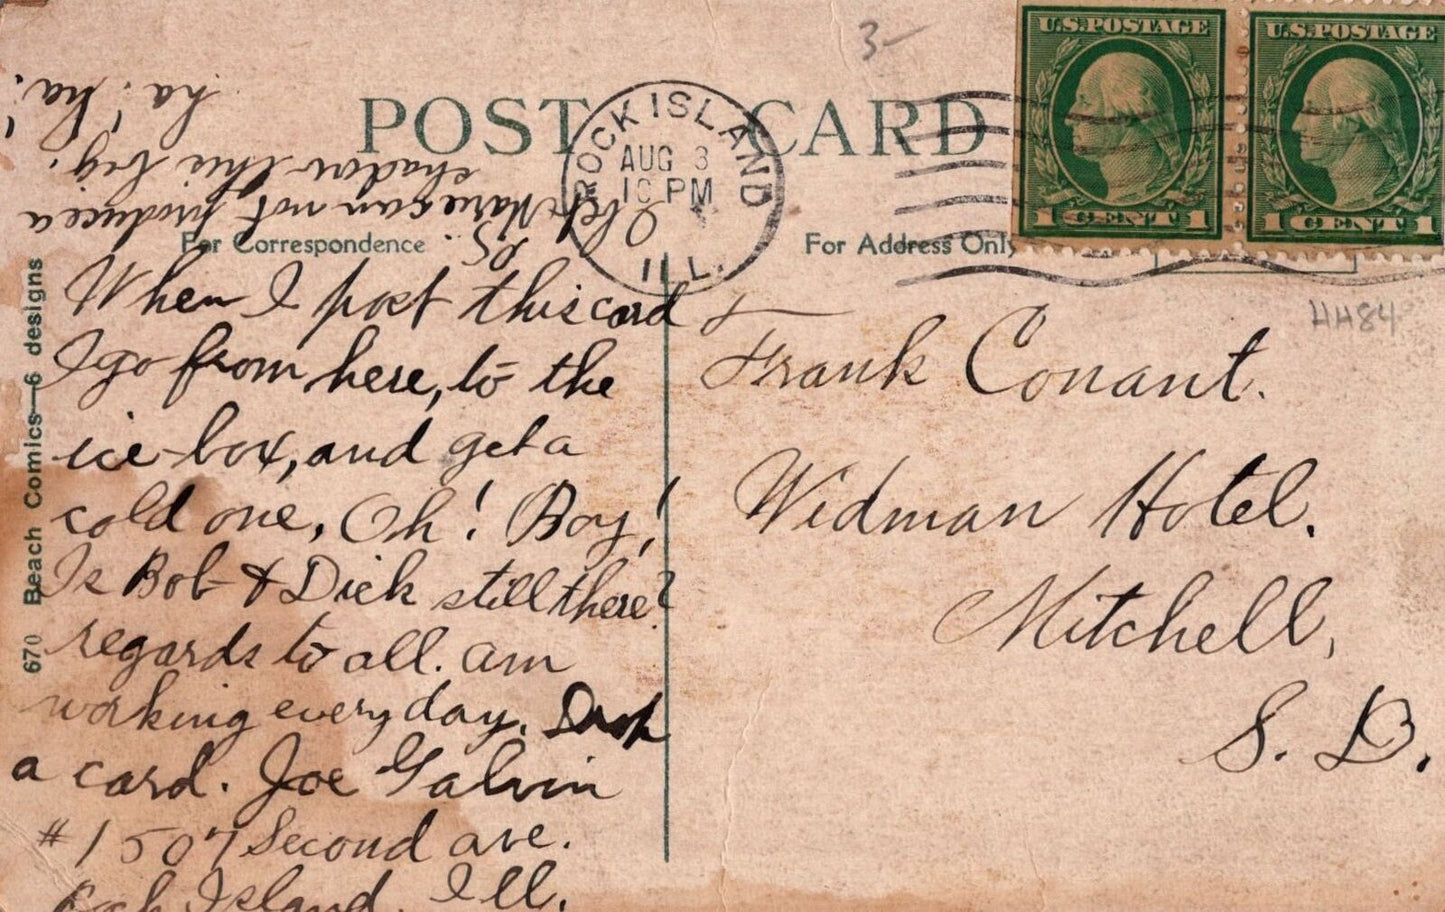 3-
U.S. POSTAGE
1 CENT 1
U.S. POSTAGE
1 CENT 1
POST CARD
ROCK ISLAND
AUG 3
10 PM
ILL.
For Correspondence
For Address Only
HH84
When I post this card
I go from here, to the
ice-box, and get a
cold one, Oh! Boy!
Is Bob & Dick still there?
regards to all. am
working every day. Drop
a card. Joe Galvin
#1507 Second ave.
Rock Island, Ill.
PS. I bet Marie can not produce a
shadow this big.
ha! ha! ha!
Frank Conant.
Widman Hotel.
Mitchell,
S. D.
670 Beach Comics—6 designs